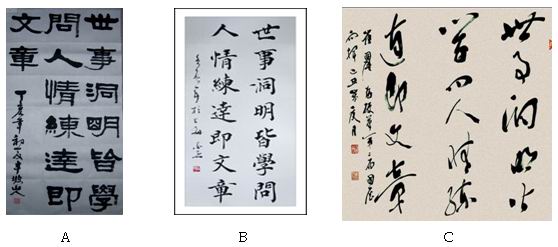 世事洞明皆學
問人情練達即
文章
丁亥年初
A
世事洞明皆學問
人情練達即文章
B
世事洞明皆
學問人情練
達即文章
C